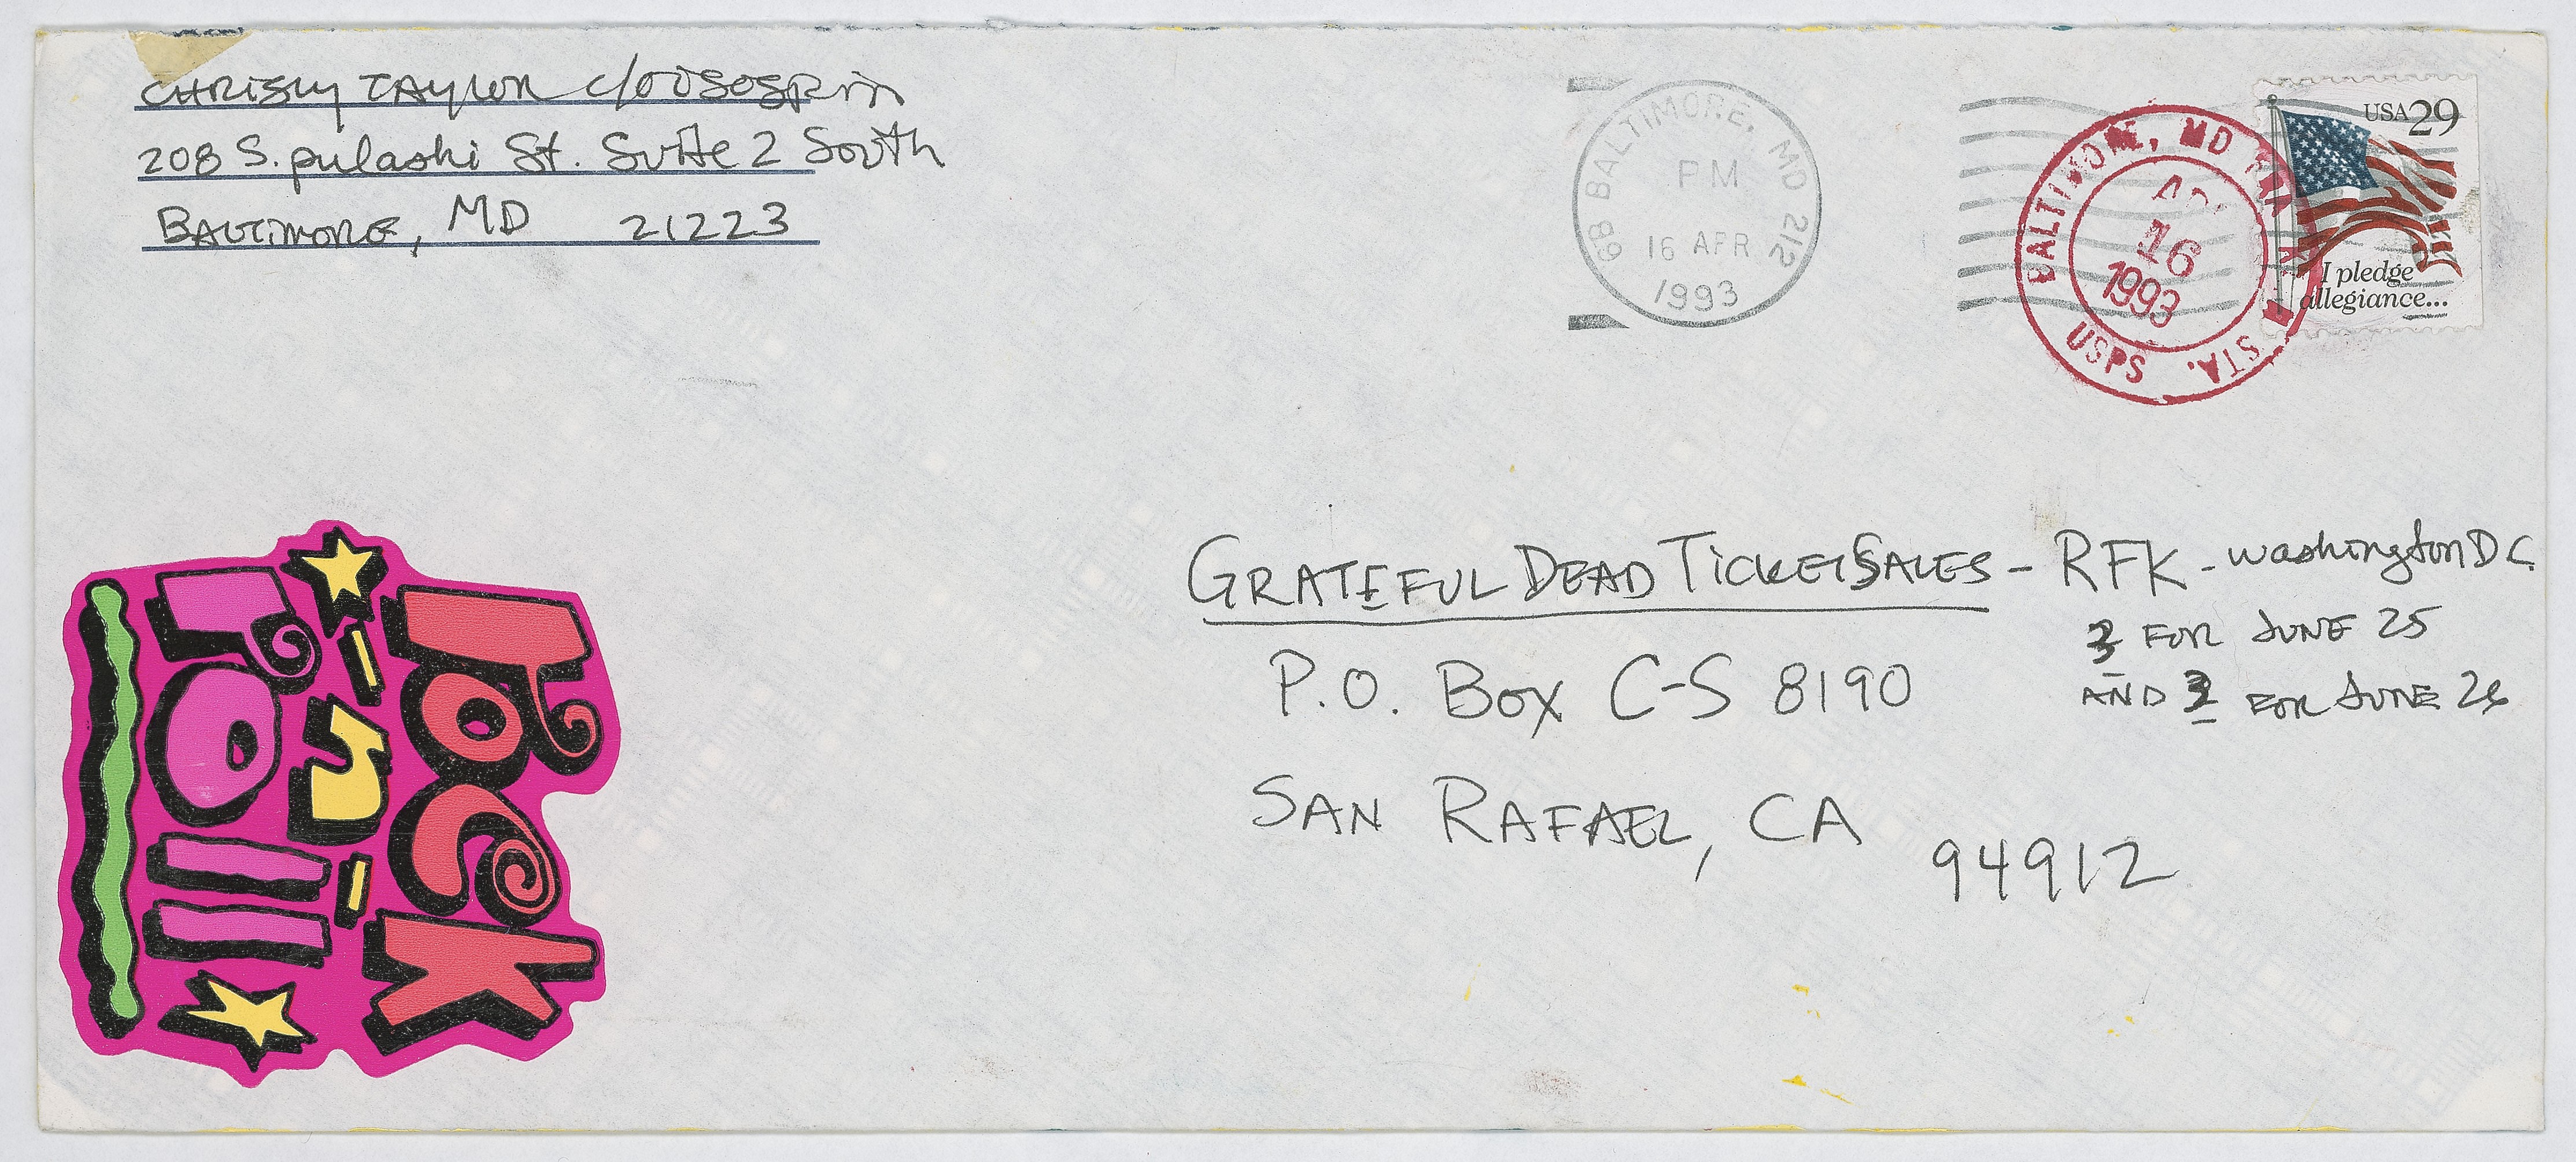 CHRISTY TAYLOR c/o
208 S. pulaski St. Suite 2 South
BALTIMORE, MD 21223
68 BALTIMORE, MD 212
PM
16 APR
1993
BALTIMORE, MD
APR
16
1993
USPS STA.
USA 29
I pledge
allegiance...
GRATEFUL DEAD TICKET SALES - RFK - Washington DC
FOR JUNE 25
AND FOR JUNE 26
P.O. Box C-S 8190
SAN RAFAEL, CA
94912
rock
n
roll